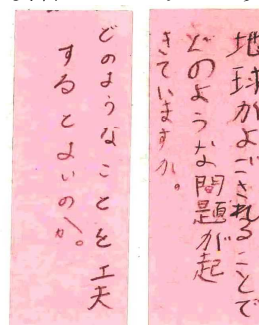 地球がよごされることで
どのような問題が起
きていますか。
どのようなことを工夫
するとよいのか。